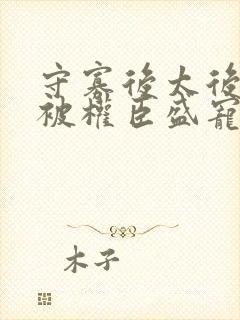 守寡後太後
被權臣盛寵
木子